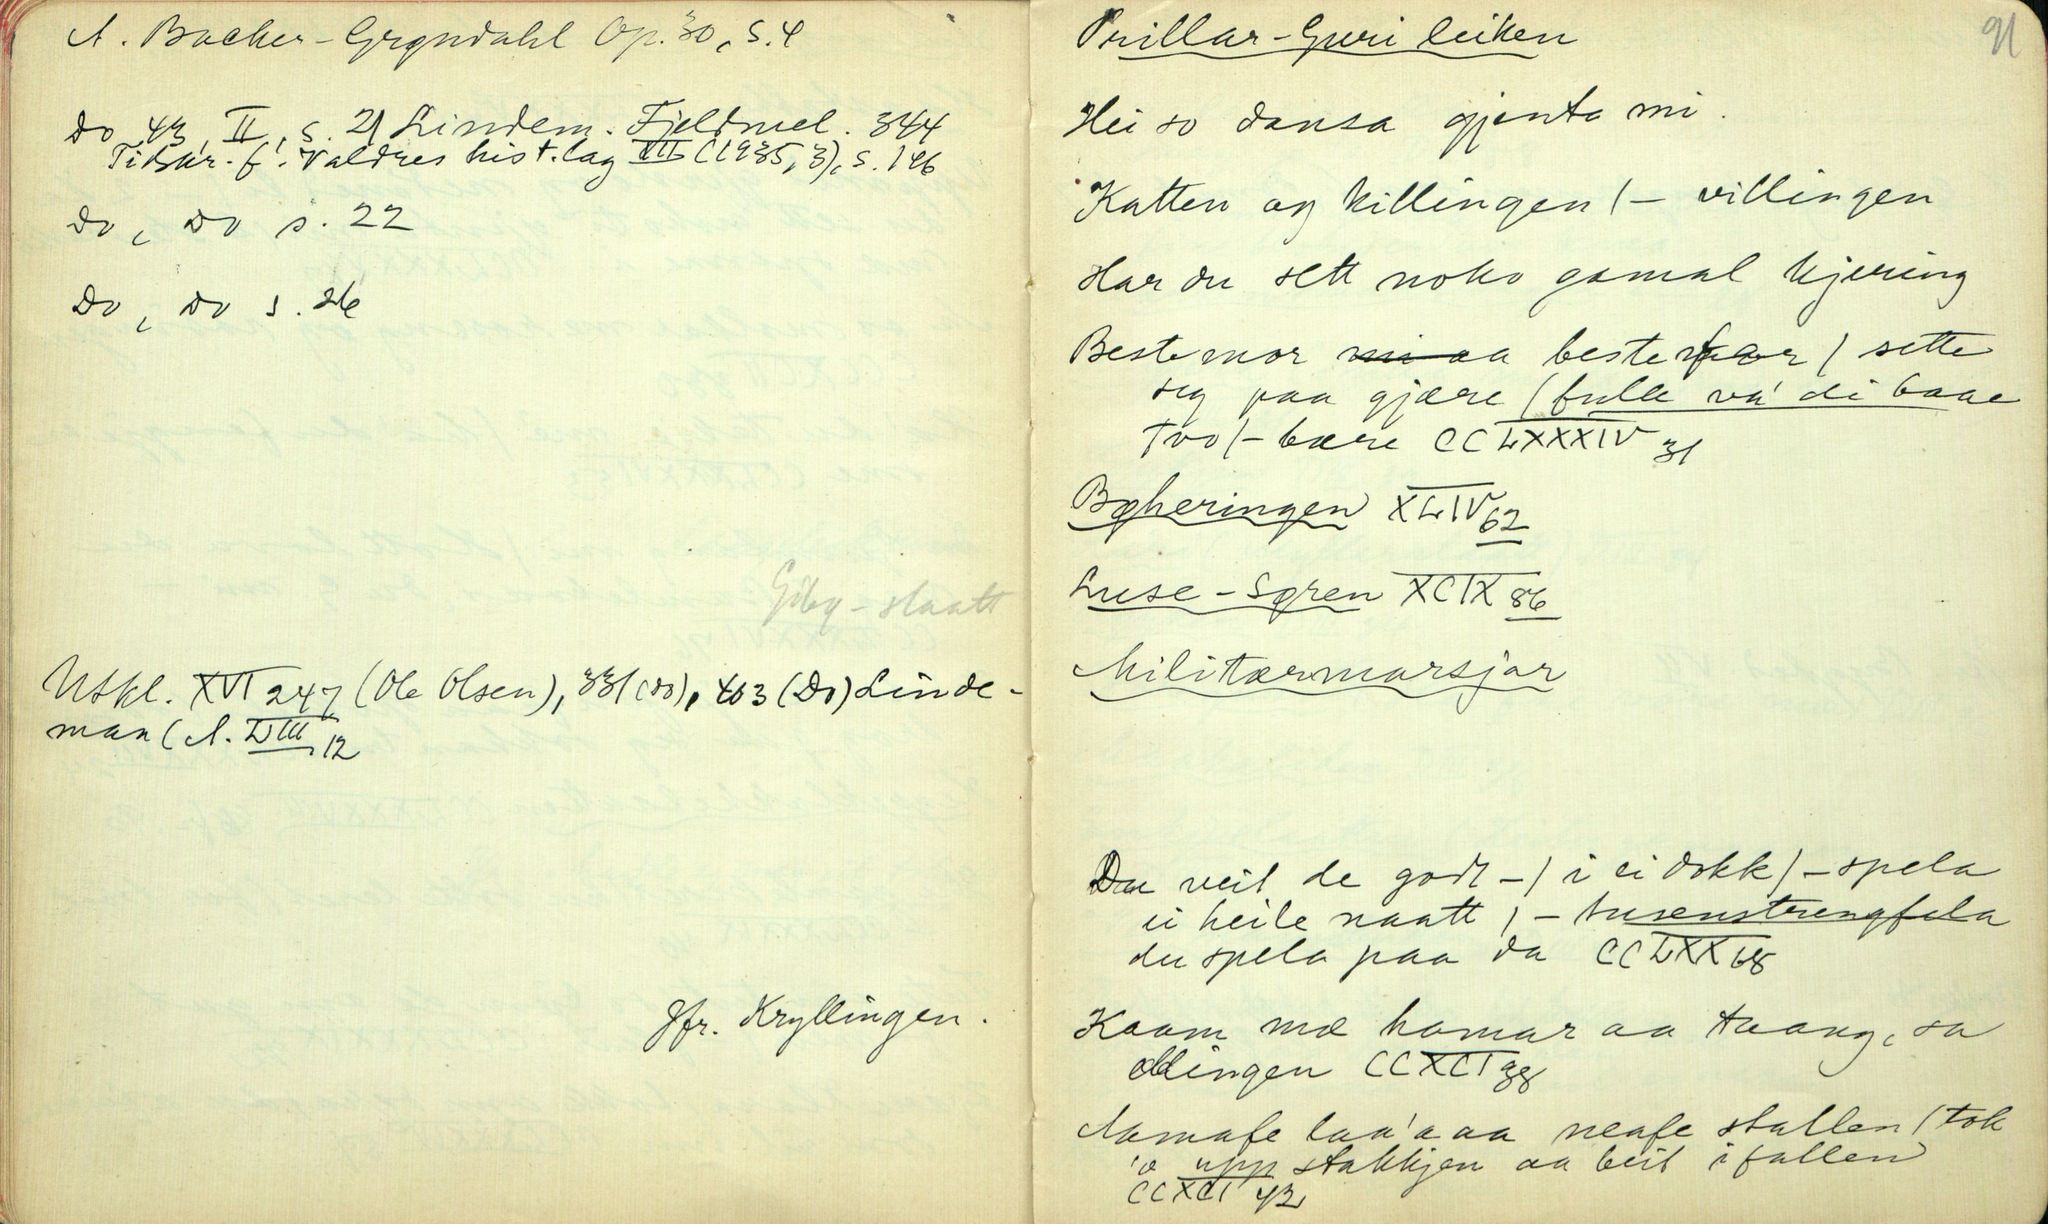 A. Backer-Grøndahl Op. 30, s. 4
Do 43, II, s. 21 Lindem. Fjeldmel. 344
Tidskr. f. Valdres hist. lag VII (1935, 3), s. 146
Do, Do s. 22
Do, Do s. 26
-slaatt
Utkl. XVI 247 (Ole Olsen), 331 (Do), 403 (Do) Linde-
man (A. LIII 12
Jfr. Kryllingen.
91
Prillar-Guri leiken
Hei so dansa gjenta mi.
Katten og killingen / - villingen
Har du sett noko gamal kjering
Bestemor mi aa bestefar / sette
seg paa gjære / fulle va' di baae
tvo / - bære CCLXXXIV 31
Bøkeringen XLIV 62
Luse-Søren XCIX 86
Militærmarsjar
Du veit de godt - / i ei dokk / - spela
ei heile naatt / - tusenstrengfela
du spela paa da CCLXX 68
Kaam mæ hamar aa taang, sa
CCXCI 38
laa'a aa stallen / tok
'o upp stakkjen aa beit i fallen
CCXCI 42